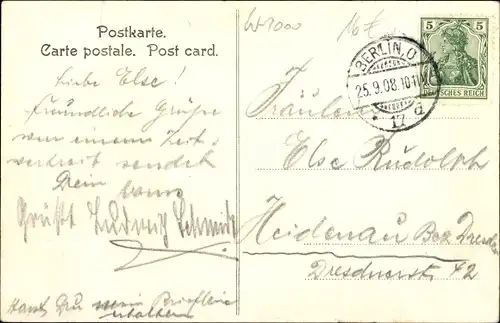 Postkarte.
Carte postale. Post card.
W1000
16 €
BERLIN, O
25.9.08.10-11
* 17 d
5 5
DEUTSCHES REICH
Liebe Else!
Freundliche Grüße
von einem Zeit-
vertreib sendet
Dein
Grüßt Ludwig Schmidt
Hast Du mein Brieflein
erhalten
Fräulein
Else Rudolph
Heidenau Bez. Dresden
Dresdnerst. 42